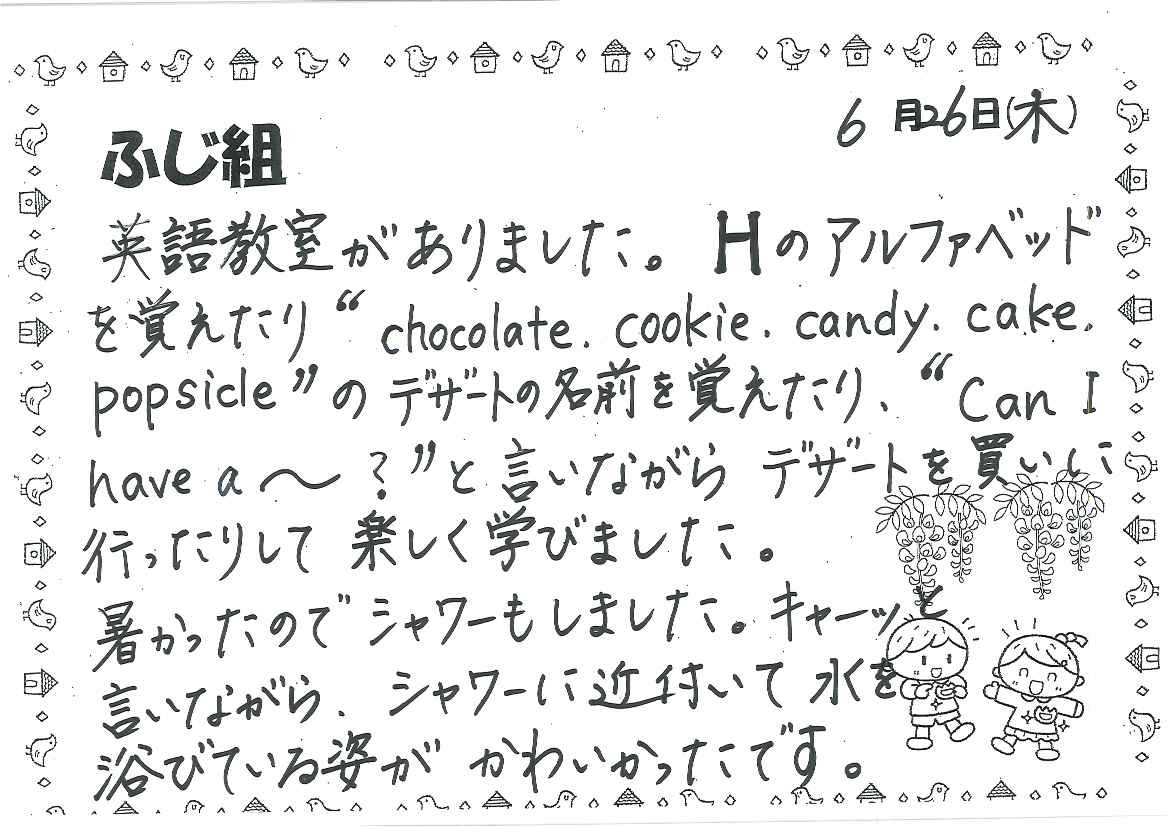 6月26日(木)
ふじ組
英語教室がありました。Hのアルファベッド
を覚えたり“chocolate. cookie. candy. cake.
popsicle”のデザートの名前を覚えたり、“Can I
have a 〜?”と言いながらデザートを買いに
行ったりして楽しく学びました。
暑かったのでシャワーもしました。キャーッと
言いながら、シャワーに近付いて水を
浴びている姿がかわいかったです。